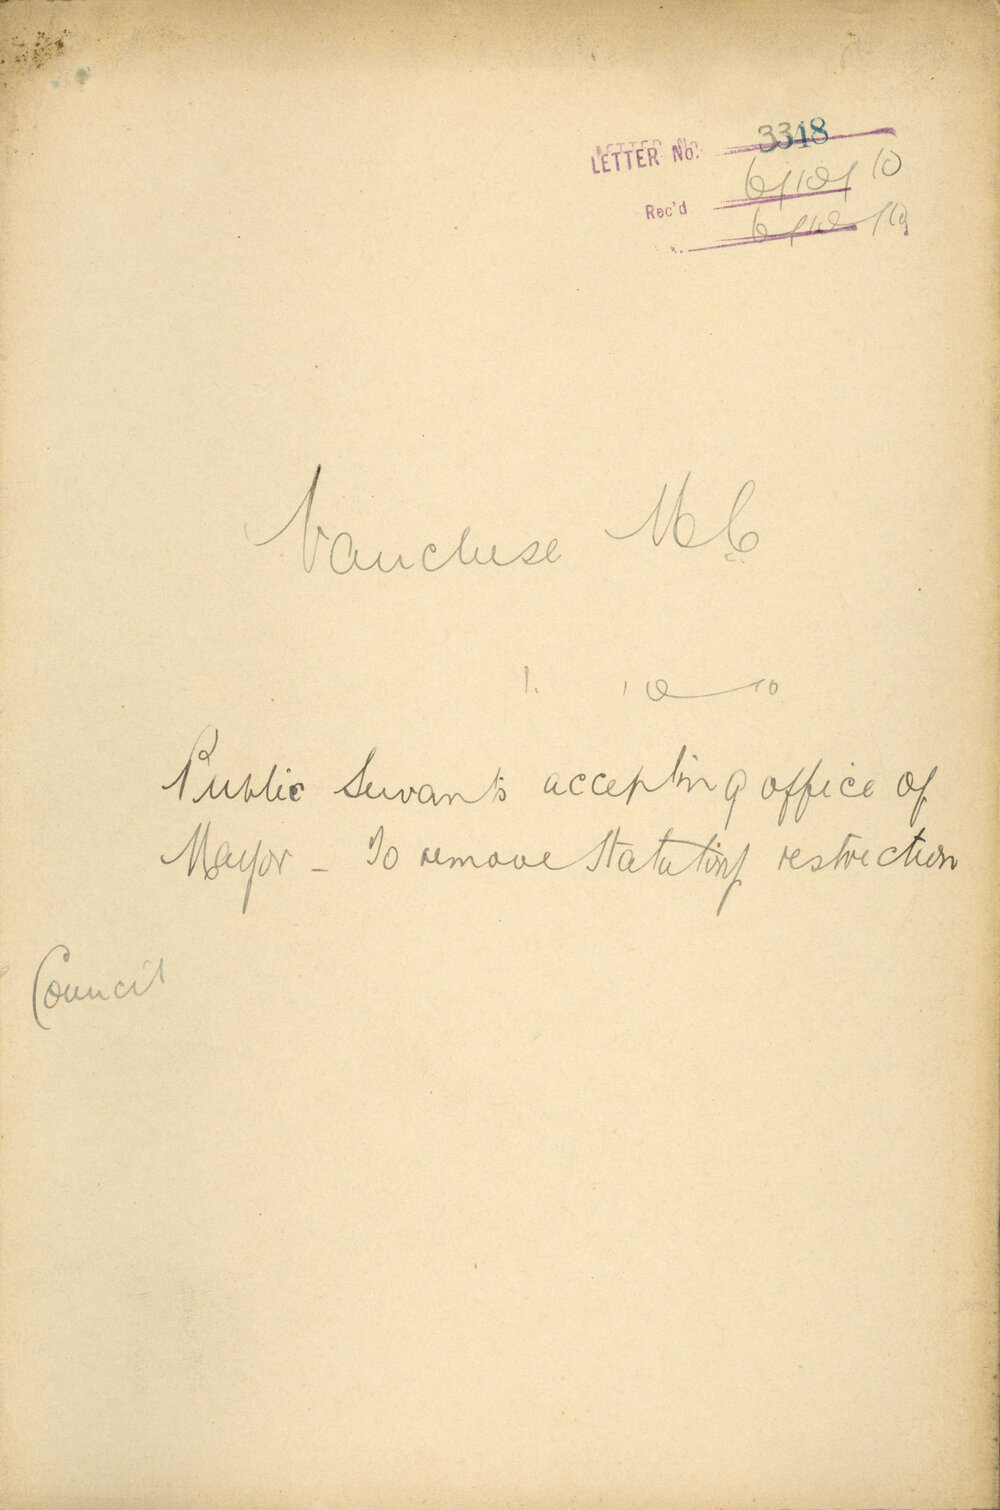 LETTER No. 3348
6/10/10
Rec'd 6/10/10
Vaucluse M C
1. 10 10
Public Servants accepting office of
Mayor - To remove Statutory restriction
Council